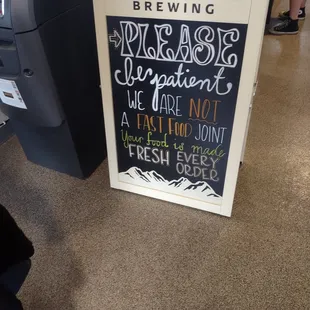 BREWING
PLEASE
be patient
WE ARE NOT
A FAST FOOD JOINT
Your food is made
FRESH EVERY
ORDER